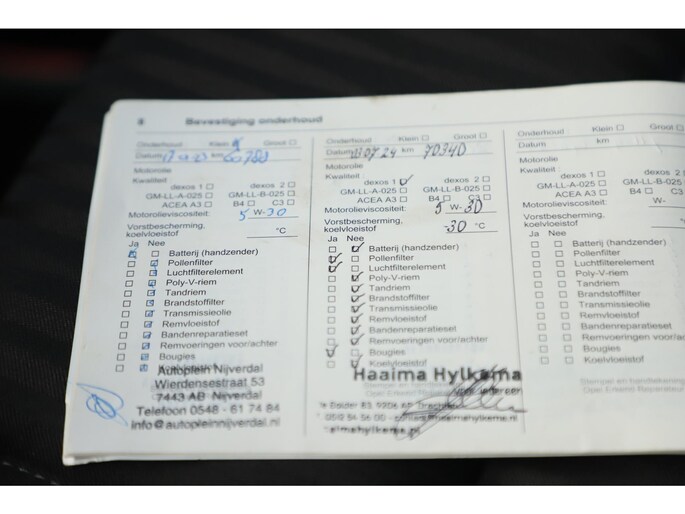 8 Bevestiging onderhoud
Onderhoud Klein Groot
Datum km 60788
Motorolie
Kwaliteit
dexos 1 dexos 2
GM-LL-A-025 GM-LL-B-025
ACEA A3 B4 C3
Motorolieviscositeit: 5 W-30
Vorstbescherming,
koelvloeistof °C
Ja Nee
Batterij (handzender)
Pollenfilter
Luchtfilterelement
Poly-V-riem
Tandriem
Brandstoffilter
Transmissieolie
Remvloeistof
Bandenreparatieset
Remvoeringen voor/achter
Bougies
Koelvloeistof
Autoplein Nijverdal
Wierdensestraat 53
7443 AB Nijverdal
Telefoon 0548 - 61 74 84
info@autopleinnijverdal.nl
Onderhoud Klein Groot
Datum 07 24 km 70340
Motorolie
Kwaliteit
dexos 1 dexos 2
GM-LL-A-025 GM-LL-B-025
ACEA A3 B4 C3
Motorolieviscositeit: 5 W-30
Vorstbescherming,
koelvloeistof -30 °C
Ja Nee
Batterij (handzender)
Pollenfilter
Luchtfilterelement
Poly-V-riem
Tandriem
Brandstoffilter
Transmissieolie
Remvloeistof
Bandenreparatieset
Remvoeringen voor/achter
Bougies
Koelvloeistof
Haaima Hylkema
Onderhoud Klein Groot
Datum km
Motorolie
Kwaliteit
dexos 1
GM-LL-A-025 GM-LL-B
ACEA A3 B4
Motorolieviscositeit: W-
Vorstbescherming,
koelvloeistof
Ja Nee
Batterij (handzender)
Pollenfilter
Luchtfilterelement
Poly-V-riem
Tandriem
Brandstoffilter
Transmissieolie
Remvloeistof
Bandenreparatieset
Remvoeringen voor/achter
Bougies
Koelvloeistof